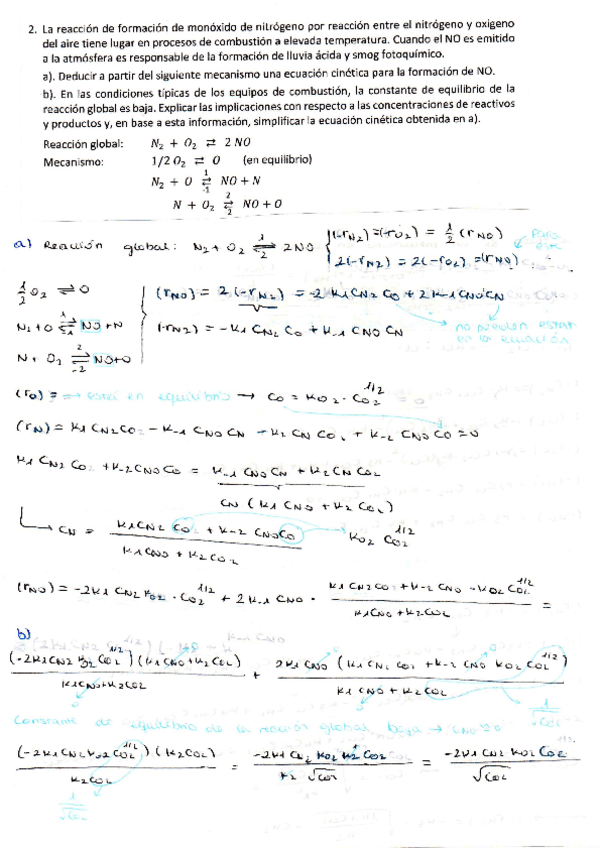 2. La reacción de formación de monóxido de nitrógeno por reacción entre el nitrógeno y oxígeno
del aire tiene lugar en procesos de combustión a elevada temperatura. Cuando el NO es emitido
a la atmósfera es responsable de la formación de lluvia ácida y smog fotoquímico.
a). Deducir a partir del siguiente mecanismo una ecuación cinética para la formación de NO.
b). En las condiciones típicas de los equipos de combustión, la constante de equilibrio de la
reacción global es baja. Explicar las implicaciones con respecto a las concentraciones de reactivos
y productos y, en base a esta información, simplificar la ecuación cinética obtenida en a).
Reacción global: N₂ + O₂ ⇄ 2 NO
Mecanismo: 1/2 O₂ ⇄ O (en equilibrio)
N₂ + O ⇄ NO + N
N + O₂ ⇄ NO + O
a) Reacción global: N₂ + O₂ ⇄ 2NO
(-rN₂) = (-rO₂) = 1/2 (rNO)
2(-rN₂) = 2(-rO₂) = (rNO)
1/2 O₂ ⇄ O
N₂ + O ⇄ NO + N
N + O₂ ⇄ NO + O
(rNO) = 2(-rN₂) = -2 k₁ CN₂ CO + 2 k₋₁ CNO CN
(-rN₂) = -k₁ CN₂ CO + k₋₁ CNO CN
no pueden estar
en la ecuación
(rO) = está en equilibrio → CO = kO₂ · CO₂^1/2 = 0
(rN) = k₁ CN₂ CO - k₋₁ CNO CN - k₂ CN CO₂ + k₋₂ CNO CO = 0
k₁ CN₂ CO + k₋₂ CNO CO = k₋₁ CNO CN + k₂ CN CO₂
CN (k₁ CNO + k₂ CO₂)
CN = (k₁ CN₂ CO + k₋₂ CNO CO) / (k₁ CNO + k₂ CO₂) kO₂ CO₂^1/2
(rNO) = -2k₁ CN₂ kO₂ · CO₂^1/2 + 2 k₋₁ CNO · (k₁ CN₂ CO₂ + k₋₂ CNO · kO₂ CO₂^1/2) / (k₁ CNO + k₂ CO₂) =
b)
(-2k₁ CN₂ kO₂ CO₂^1/2)(k₁ CNO + k₂ CO₂) / (k₁ CNO + k₂ CO₂) + 2k₁ CNO (k₁ CN₂ CO₂ + k₋₂ CNO kO₂ CO₂^1/2) / (k₁ CNO + k₂ CO₂)
Constante de equilibrio de la reacción global baja → CNO ≈ 0
(-2k₁ CN₂ kO₂ CO₂^1/2)(k₂ CO₂) / (k₂ CO₂) = -2k₁ CN₂ kO₂ k₂ CO₂ / (k₂ √CO₂) = -2k₁ CN₂ kO₂ CO₂ / √CO₂